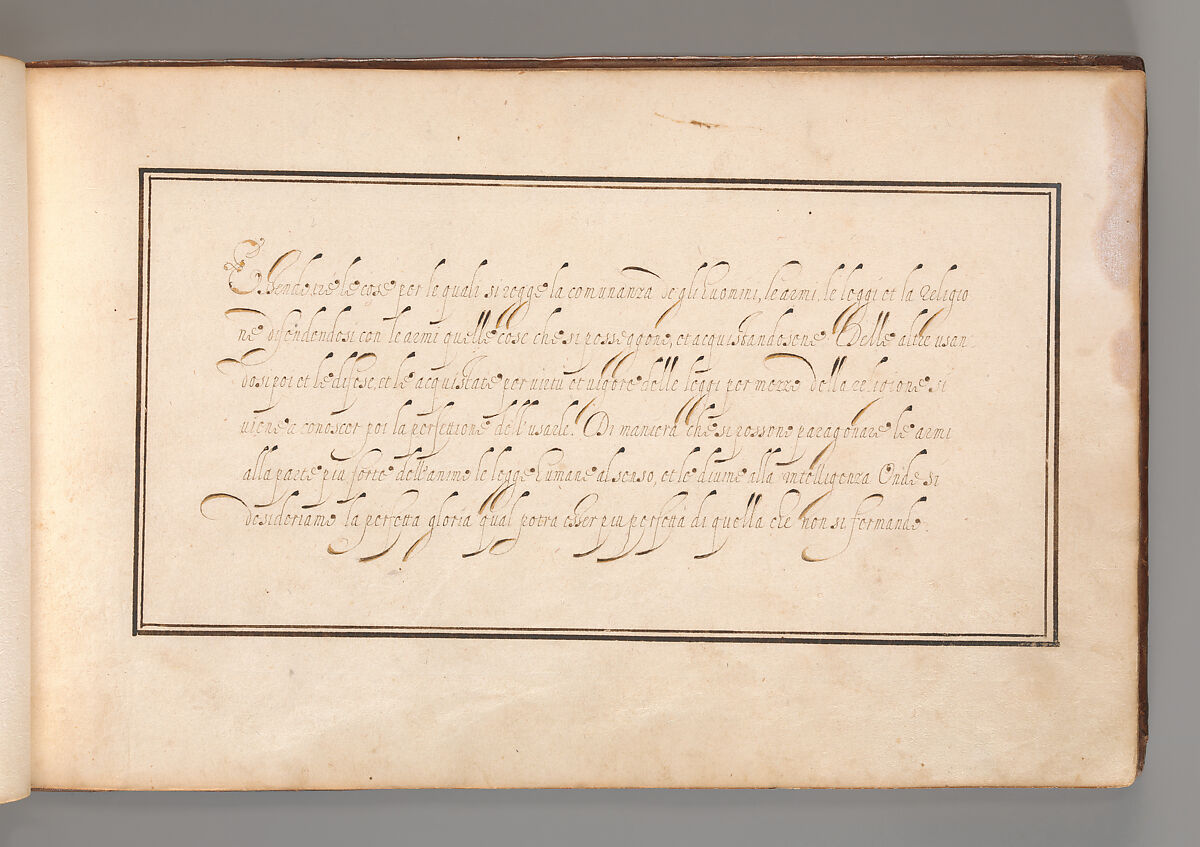 Essendo tre le cose per le quali si regge la comunanza de gli huomini, le armi, le leggi et la Religio
ne difendendosi con le armi quelle cose che si posseggono, et acquistandosene Delle altre usan
dosi poi et le difese, et le acquistate per virtu et vigore delle leggi per mezzo della religione si
viene a conoscer poi la perfettione dell'usarle. Di maniera che si possono paragonare le armi
alla parte piu forte dell'animo le legge humane al senso, et le divine alla intelligenza Onde si
desideriamo la perfetta gloria qual potra esser piu perfetta di quella che non si fermando